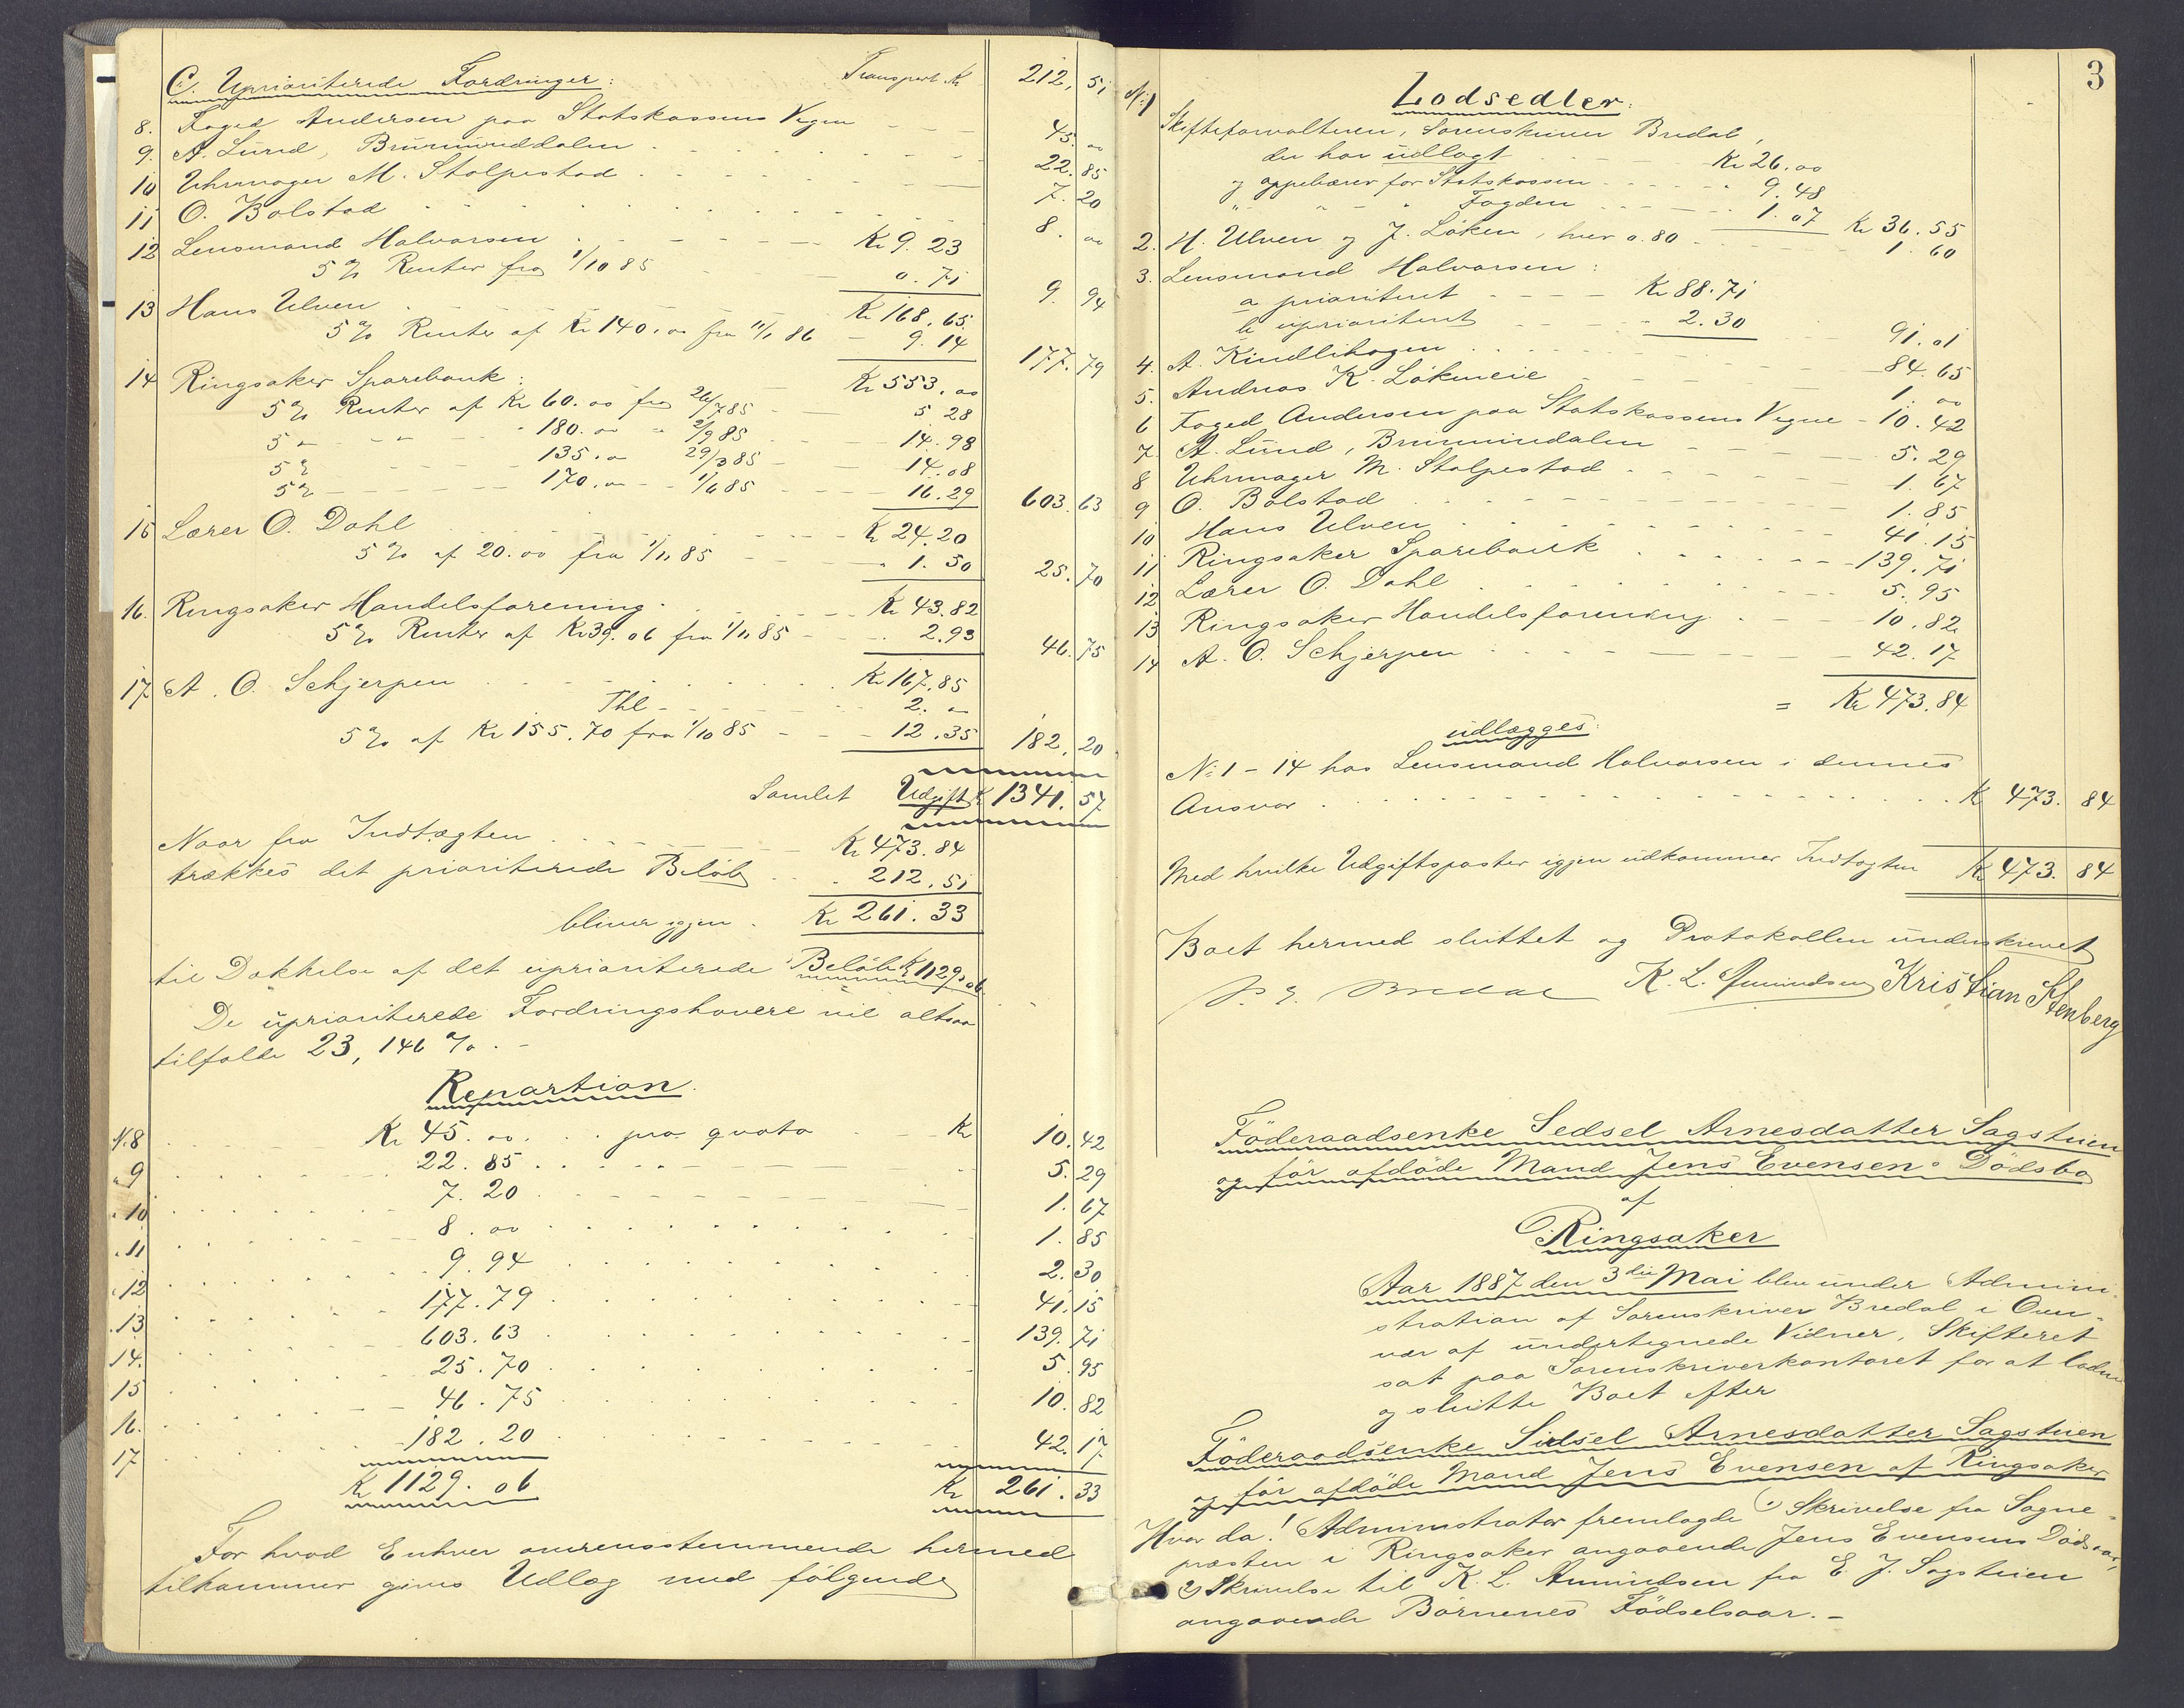 C. Uprioriterede Fordringer: Transport Kr 212, 51
8. Foged Andersen paa Statskassens Vegne 45. 00
9. A. Lund, Brumunddalen 22. 85
10 Uhrmager M. Stolpestad 7. 20
11 O. Bolstad 8. 00
12 Lensmand Halvorsen Kr 9. 23
5 % Renter fra 1/10 85 0. 71 9. 94
13 Hans Ulven Kr 168. 65
5 % Renter af Kr 140. 00 fra 11/1 86 9. 14 177. 79
14 Ringsaker Sparebank: Kr 553. 00
5 % Renter af Kr 60. 00 fra 26/7 85 5 28
5 " - " - 180. 00 " 2/9 85 14. 98
5 % 135. 00 29/3 85 14. 08
5 % 170. 00 1/6 85 16. 29 603. 63
15 Lærer O. Dahl Kr 24. 20
5 % af 20. 00 fra 1/11 85 1. 50 25. 70
16. Ringsaker Handelsforening Kr 43. 82
5 % Renter af Kr 39. 06 fra 1/11 85 2. 93 46. 75
17 A. O. Schjerpen Kr 167. 85
Thl 2. 00
5 % af Kr 155. 70 fra 1/10 85 12. 35 182. 20
Samlet Udgift Kr 1341. 57
Naar fra Indtægten Kr 473. 84
trækkes det prioriterede Beløb 212. 51
bliver igjen Kr 261. 33
til Dækkelse af det uprioriterede Beløb Kr 1129. 06
De uprioriterede Fordringshavere vil altsaa
tilfalde 23, 146 %. -
Repartion.
N. 8 Kr 45. 00 pro quota Kr 10. 42
" 9 22. 85 5. 29
" 10 7. 20 1. 67
" 11 8. 00 1. 85
" 12 9. 94 2. 30
" 13 177. 79 41. 15
" 14. 603. 63 139. 71
15 25. 70 5. 95
16. 46. 75 10. 82
17 182. 20 42. 17
Kr 1129. 06 Kr 261. 33
For hvad Enhver overensstemmende hermed
tilkommer gives Udlæg med følgende
3
Lodsedler:
No 1 Skifteforvalteren, Sorenskriver Bredal,
der har udlagt Kr 26. 00
og oppebærer for Statskassen 9. 48
" " " Fogden 1. 07 Kr 36. 55
2. H. Ulven og J. Løken, hver 0. 80 1. 60
3. Lensmand Halvorsen:
a prioriteret Kr 88. 71
b uprioriteret 2. 30 91. 01
4. A. Kindlihagen 84. 65
5. Andreas K. Løkmeie 1. 00
6 Foged Andersen paa Statskassens Vegne 10. 42
7 A. Lund, Brumundalen 5. 29
8 Uhrmager M. Stolpestad 1. 67
9 O. Bolstad 1. 85
10 Hans Ulven 41. 15
11 Ringsaker Sparebank 139. 71
12 Lærer O. Dahl 5. 95
13 Ringsaker Handelsforening 10. 82
14 A. O. Schjerpen 42. 17
= Kr 473. 84
udlægges:
No 1 - 14 hos Lensmand Halvorsen i dennes
Ansvar Kr 473. 84
Med hvilke Udgiftsposter igjen udkommer Indtægten Kr 473. 84
Boet hermed sluttet og Protokollen underskrevet
Bredal K. L. Amundsen Kristian Stenberg
Föderaadsenke Sedsel Arnesdatter Sagstuen
og før afdøde Mand Jens Evensens Dödsbo
af
Ringsaker
Aar 1887 den 3die Mai blev under Admini-
stration af Sorenskriver Bredal i Over-
vær af undertegnede Vidner, Skifteret
sat paa Sorenskriverkontoret for at lodne
og slutte Boet efter
Föderaadsenke Sidsel Arnesdatter Sagstuen
og før afdøde Mand Jens Evensen af Ringsaker
Hvor da! Administrator fremlagde 1) Skrivelse fra Sogne-
præsten i Ringsaker angaaende Jens Evensens Dødsaar,
2) Skrivelse til K. L. Amundsen fra E. J. Sagstuen
angaaende Børnenes Fødselsaar. -